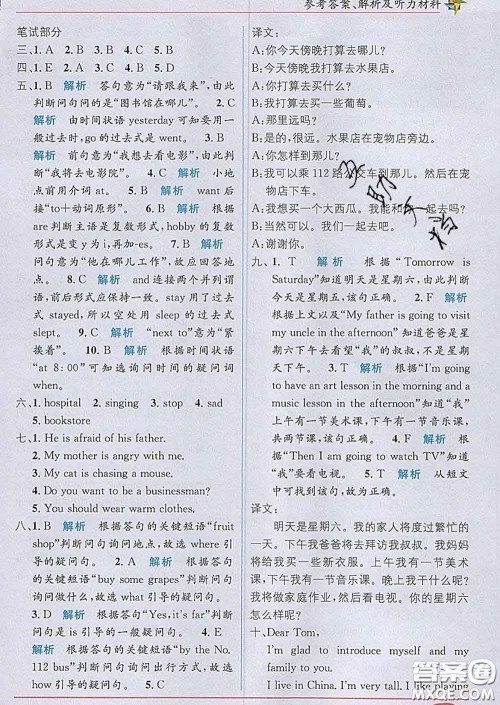 参考答案、解析及听力材料
笔试部分
三、1. A  2. B  3. A  4. C  5. A
四、1. E  2. A  3. B  4. C  5. D
五、1. B 解析 答句意为“请跟我来”,由此
判断问句问的是“图书馆在哪儿”。 2. C
解析 由时间状语 yesterday 可知要用一
般过去时,go 的过去式是 went。 3. B
解析 前句意为“我想去看电影”,由此判断
“我将去电影院”。 4. C 解析 小地
点前用介词 at。 5. B 解析 want 后
接“to+动词原形”。 6. B 解析 根据
are 判断主语是复数形式,hobby 的复数
形式是变 y 为 i,再加-es。 7. B 解析
问句意为“他在哪儿工作”,故应回答地
点。 8. C 解析 and连接两个并列谓
语,前后形式应保持一致。stay 用了过去
式 stayed,所以空处用 sleep 的过去式
slept。 9. C 解析 “next to”意为“紧
挨着”。 10. B 解析 根据时间状语“
at 8:00”可知选询问时间的疑问词
when。
六、1. hospital  2. singing  3. stop  4. sad
5. bookstore
七、1. He is afraid of his father.
2. My mother is angry with me.
3. My cat is chasing a mouse.
4. Do you want to be a businessman?
5. You should wear warm clothes.
八、1. B 解析 根据答句的关键短语“fruit
shop”判断问句询问地点,故选 where 引
导的疑问句。 2. C 解析 根据答句的
关键短语“buy some grapes”判断问句询
问做什么,故选 what 引导的疑问句。
3. D 解析 根据答句“Yes,it's far”判断
问句是 is 引导的一般疑问句。 4. E
解析 根据答句的关键短语“by the No.
112 bus”判断问句询问出行方式,故选
how 引导的疑问句。 5. A
译文:
A:你今天傍晚打算去哪儿?
B:今天傍晚我打算去水果店。
A:你打算去买什么?
B:我打算去买一些葡萄。
A:那里远吗?
B:是的,很远。水果店在宠物店旁边。
A:你怎样到那儿?
B:我可以乘 112 路公交车到那儿。然后在宠
物店下车。
A:我想买一个大西瓜。我能和你一起去吗?
B:当然可以。我们一起去吧。
A:谢谢你。
九、1. T 解析 根据“Tomorrow is
Saturday”知道明天是星期六,由此判断
今天是星期五,该句正确。 2. F 解析
根据上文以及“My father is going to visit
my uncle in the afternoon”知道爸爸是
星期六下午去看望“我”的叔叔,不是星
期三。 3. T 解析 根据“I'm going to
have an art lesson in the morning and
a music lesson in the afternoon”知道“我”
上午有一节美术课,下午有一节音乐课,
共两节课,该句正确。 4. F 解析 根
据“Then I am going to watch TV”知道
“我”要看电视。 5. T 解析 从短文
中可找到相关信息。
译文:
明天是星期六。我的家人将度过繁忙的
一天。下午爸爸将去拜访我叔叔。我妈妈
将给我买一些新衣服。上午我有一节美术
课,下午我有一节音乐课。晚上我干什么呢?
我将做家庭作业,然后看电视。你的星期
六怎么样呢?
十、Dear Tom,
I'm glad to introduce myself and my
family to you.
I live in China. I'm very tall. I like playing